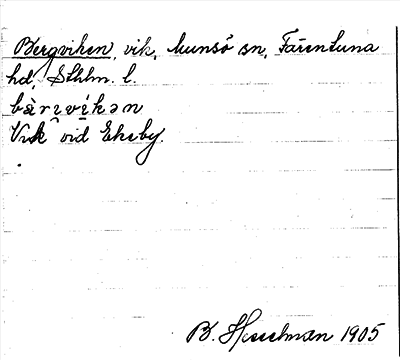 Bergviken, vik, Munsö sn, Färentuna
hd, Sthlm. l.
bàrɩvíkən
Vik vid Ekeby.
B. Hesselman 1905